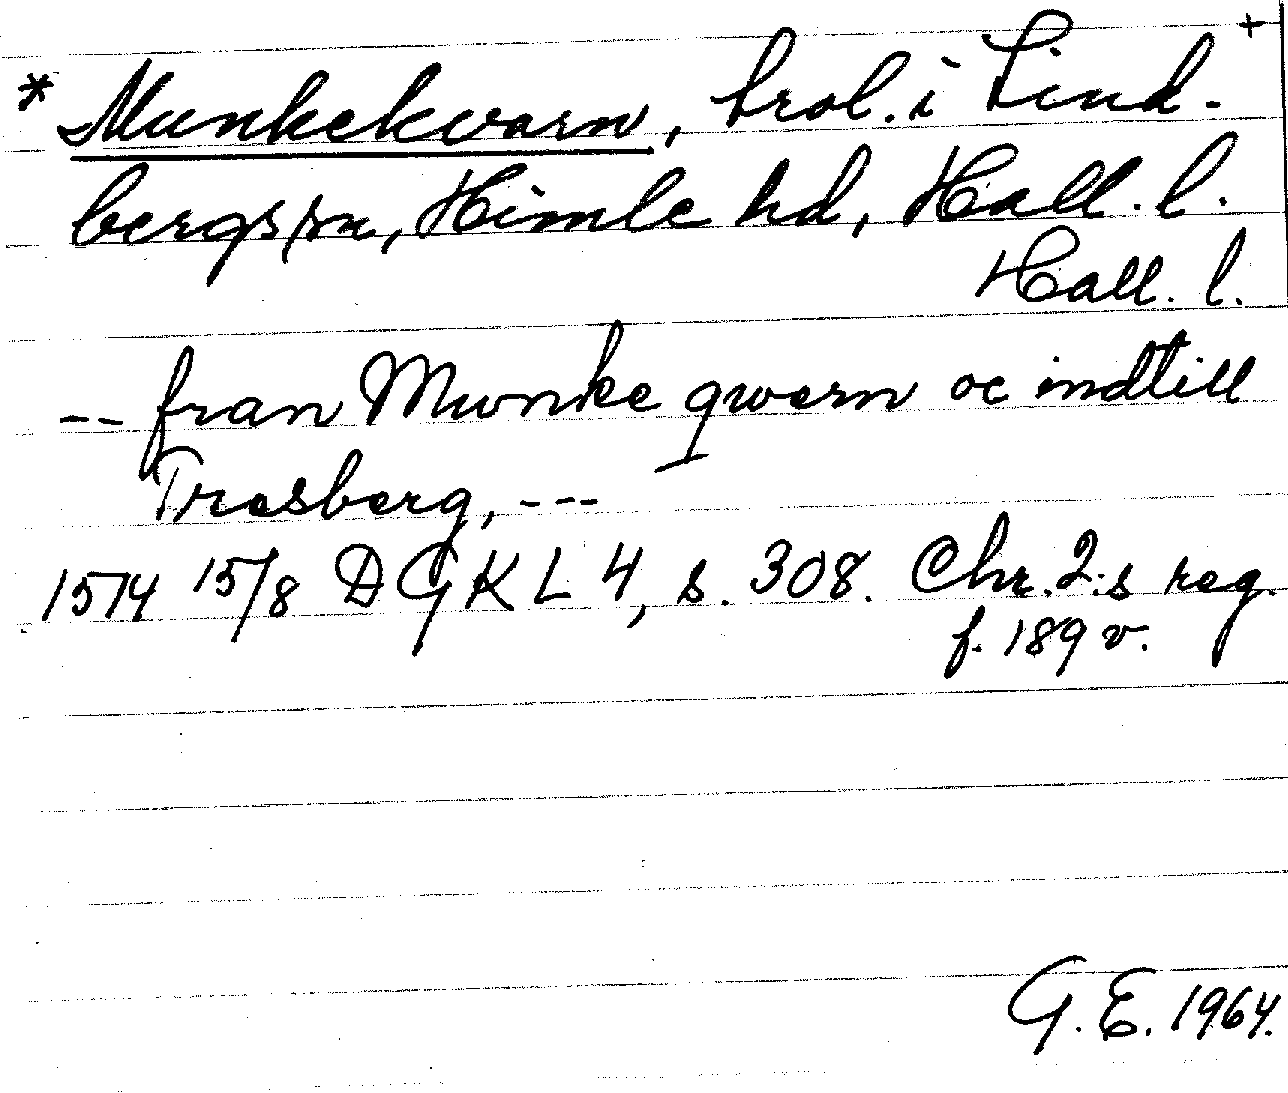 +
* Munkekvarn, trol. i Lind-
bergs sn, Himle hd, Hall. l.
Hall. l.
-- fran Mwnke qwern oc indtill
Tresberg, ---
1514 15/8 DGKL 4, s. 308. Chr. 2:s reg.
f. 189 v.
G. E. 1964.